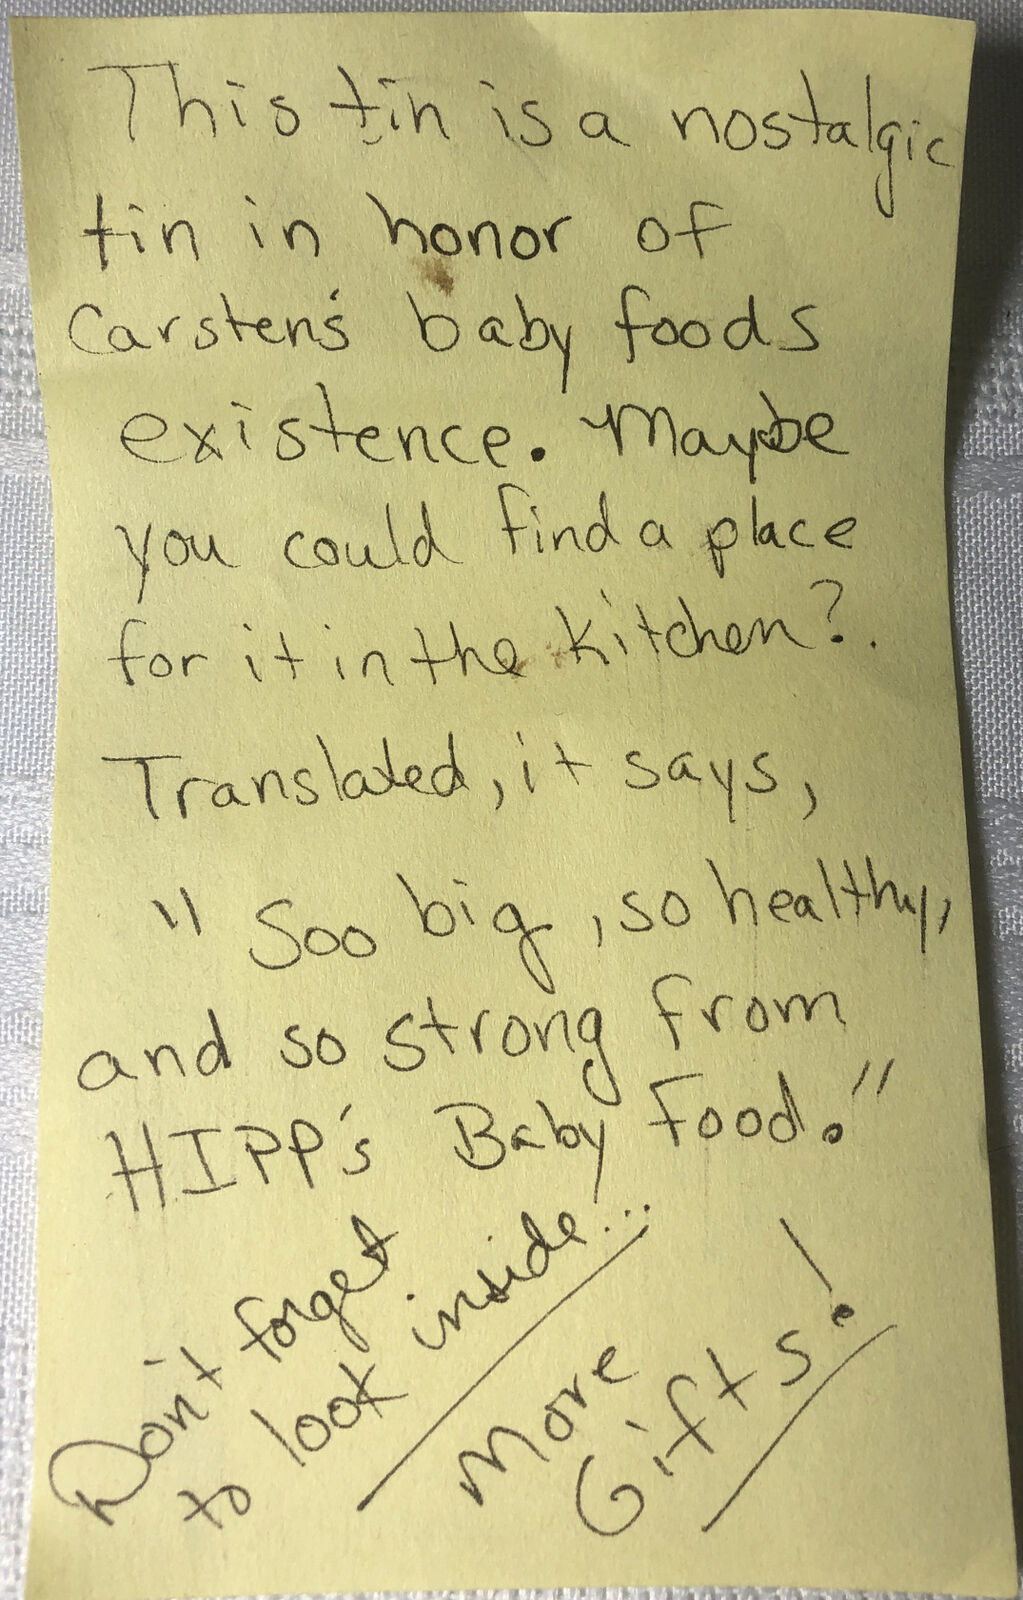 This tin is a nostalgic
tin in honor of
Carsten's baby foods
existence. Maybe
you could find a place
for it in the kitchen?.
Translated, it says,
"Soo big, so healthy,
and so strong from
HIPP's Baby Food."
Don't forget
to look inside...
More
Gifts!